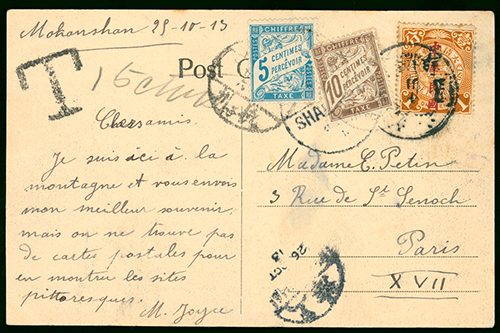 Mokanshan 25-10-13
T
15 cms
Post C
CHIFFRE
5
CENTIMES
A PERCEVOIR
TAXE
CHIFFRE
10
CENTIMES
A PERCEVOIR
TAXE
SHA
1
Chers amis.
Je suis ici à la
montagne et vous envois
mon meilleur souvenir;
mais on ne trouve pas
de cartes postales pour
en montrer les sites
pittoresques.
M. Joyce
Madame C. Petin
3 Rue de St Senoch
Paris
XVII
26 OCT
13